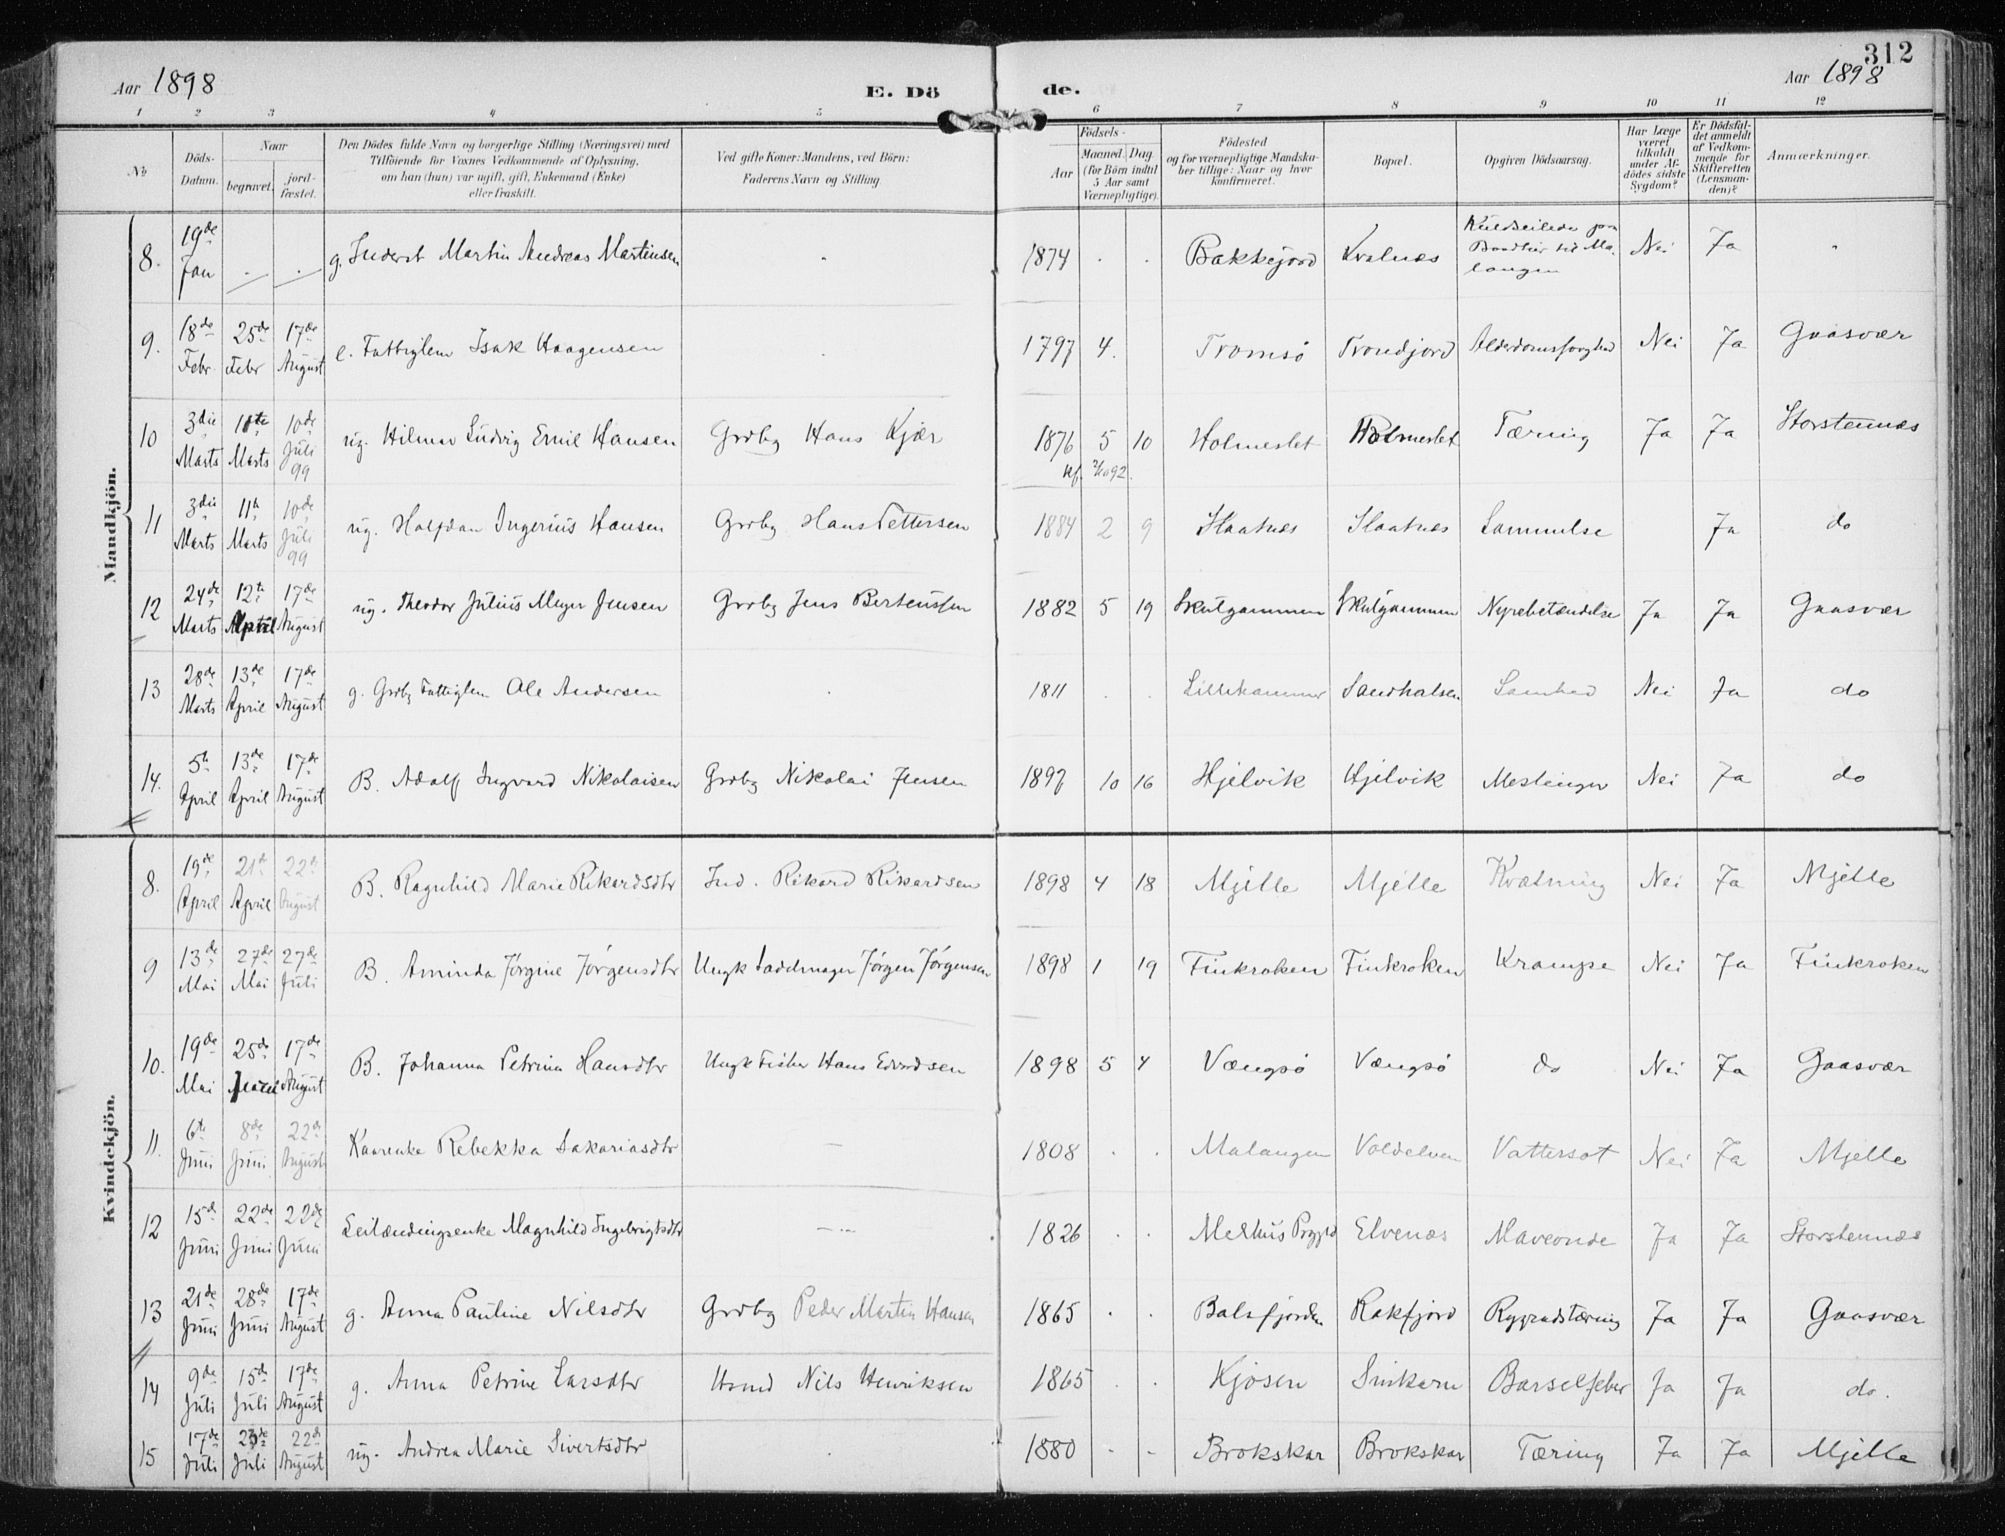 312
Aar 1898 E. Dö de. Aar 1898
1 2 3 4 5 6 7 8 9 10 11 12
No
Döds-Datum.
Naar
begravet.
jord-fæstet.
Den Dödes fulde Navn og borgerlige Stilling (Næringsvei) med
Tilföiende for Voxnes Vedkommende af Oplysning,
om han (hun) var ugift, gift, Enkemand (Enke)
eller fraskilt.
Ved gifte Koner: Mandens, ved Börn:
Faderens Navn og Stilling.
Födsels-
Aar
Maaned. Dag
(for Börn indtil
5 Aar samt
Værnepligtige).
Födested
og for værnepligtige Mandska-
ber tillige: Naar og hvor
konfirmeret.
Bopæl.
Opgiven Dödsaarsag.
Har Læge
været
tilkaldt
under Af-
dödes sidste
Sygdom?
Er Dödsfal-
det anmeldt
af Vedkom-
mende for
Skifteretten
(Lensman-
den)?
Anmærkninger.
Mandkjön.
8. 19de Jan g. Inderst Martin Andreas Martinsen 1874 Bakkejord Kvalnæs Kuldseilede paa Baadtur til Malangen Nei Ja
9. 18de Febr. 25de Febr 17de August e. Fattiglem Isak Haagensen 1797 4. Tromsö Trondjord Alderdomssvaghed Nei Ja Gaasvær
10 3die Marts 11te Marts 10de Juli 99 ug. Hilmar Ludvig Emil Hansen Grdbg Hans Kjær 1876 5 10 Holmeslet Holmeslet Tæring Ja Ja Storstennæs
kf. 2/10 92.
11 3die Marts 11te Marts 10de Juli 99 ug. Halfdan Ingerius Hansen Grdbg Hans Pettersen 1884 2 9 Slaatnæs Slaatnæs Lammelse Ja do
12 24de Marts 12te April 17de August ug. Theodor Julius Meyer Jensen Grdbg Jens Berteussen 1882 5 19 Skulgammen Skulgammen Nyrebetændelse Ja Ja Gaasvær
13 28de Marts 13de April 17de August g. Grdbg Fattiglem Ole Andersen 1811 Lillehammer Sandhalsen Nei Ja do
14. 5te April 13de April 17de August B. Adolf Ingvard Nikolaisen Grdbg Nikolai Jensen 1897 10 16 Hjelvik Hjelvik Meslinger Nei Ja do
Kvindekjön.
8. 19de April 21de April 22de August B. Ragnhild Marie Rikardsdtr Ind. Rikard Rikardsen 1898 4 18 Mjelle Mjelle Kvælning Nei Ja Mjelle
9 13de Mai 27de Mai 27de Juli B. Aminda Jörgine Jörgensdtr Ungk Sadelmager Jörgen Jörgensen 1898 1 19 Finkroken Finkroken Krampe Nei Ja Finkroken
10. 19de Mai 25de 17de August B. Johanna Petrina Hansdtr Ungk Fisker Hans Edvardsen 1898 5 4 Vængsö Vængsö do Nei Ja Gaasvær
11. 6te Juni 8de Juni 22de August Kaarenke Rebekka Sakariasdtr 1808 Malangen Voldelven Vattersot Nei Ja Mjelle
12 15de Juni 22de Juni 22de Juni Leilændingsenke Magnhild Ingebrigtsdtr 1826 Melhus Prgjld Elvenæs Maveonde Ja Ja Storstennæs
13 21de Juni 28de Juni 17de August g. Anna Pauline Nilsdtr Grdbg Peder Martin Hansen 1865 Balsfjorden Rakfjord Rygradstæring Ja Ja Gaasvær
14 9de Juli 15de Juli 17de August g. Anna Petrine Larsdtr Hsmd Nils Henriksen 1865 Kjosen Barselfeber Ja Ja do.
15 17de Juli 23de Juli 22de August ug. Andrea Marie Sivertsdtr 1880 Brokskar Brokskar Tæring Ja Ja Mjelle